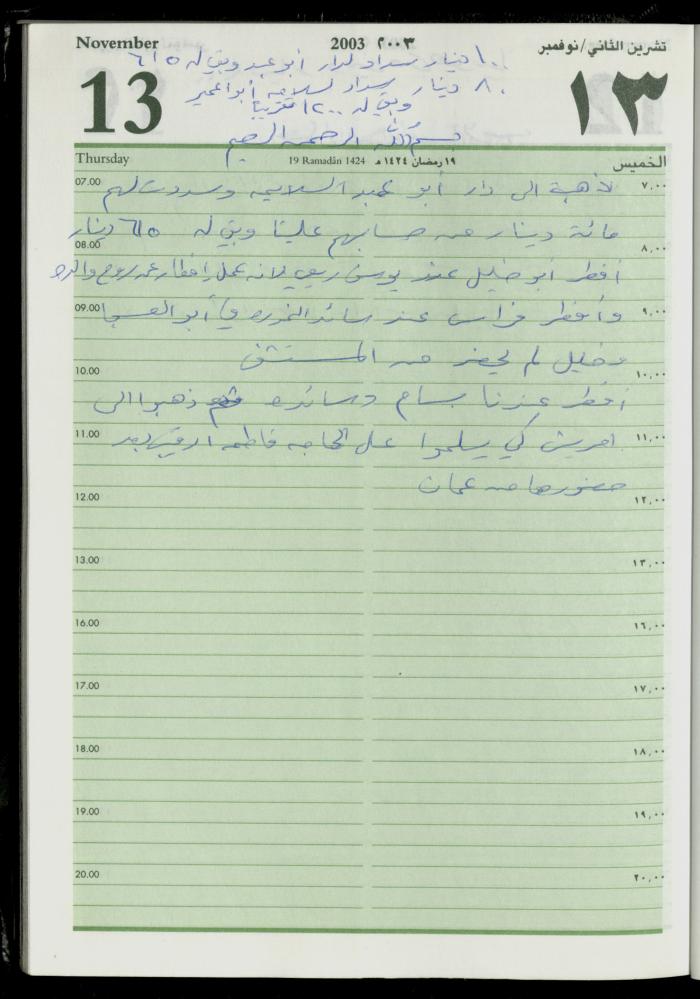 November 2003 ٢٠٠٣ تشرين الثاني/نوفمبر
١٠٠ دينار سداد لدار أبو عبد وبقي له ٦١٥
٨٠ دينار سداد لسلامه أبو
وبقي له ١٢٠٠ تقريباً
13 ١٣
بسم الله الرحمن الرحيم
Thursday 19 Ramadân 1424 ١٩ رمضان ١٤٢٤ هـ الخميس
07.00 ذهبة الى دار أبو عبد السلايمه وسددت لهم ٧,٠٠
مائة دينار من حسابهم علينا وبقي له ٦١٥ دينار
08.00 ٨,٠٠
أفطر أبو خليل عند يوسف ربعي لانه عمل إفطار عن روح والده
09.00 وأفطر فراس عند سائد أبو العسجا ٩,٠٠
وخليل لم يحضر من المستشفى
10.00 ١٠,٠٠
أفطر عندنا بسام وسائده ثم ذهبوا الى
11.00 امريش كي يسلموا على الحاجه فاطمه بعد ١١,٠٠
حضورها من عمان
12.00 ١٢,٠٠
13.00 ١٣,٠٠
16.00 ١٦,٠٠
17.00 ١٧,٠٠
18.00 ١٨,٠٠
19.00 ١٩,٠٠
20.00 ٢٠,٠٠